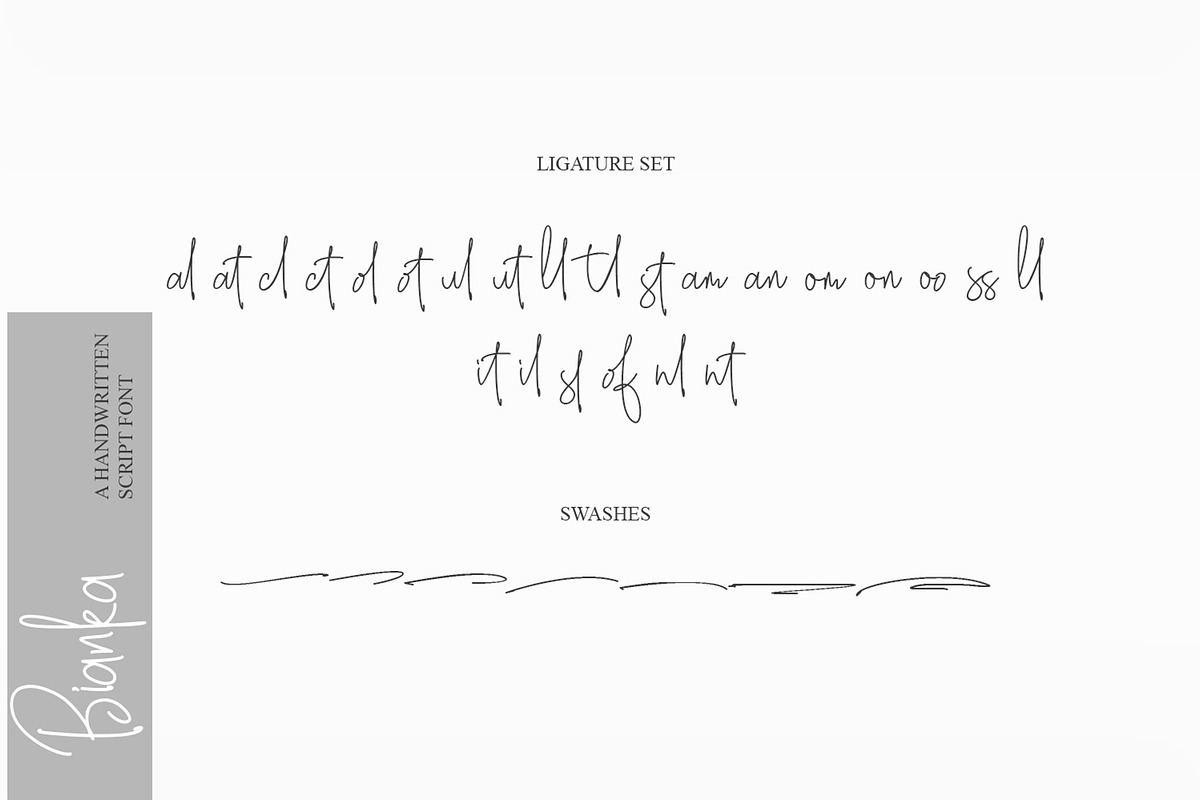 LIGATURE SET
al at cl ct ol ot ul ut ll tl st am an om on oo ss ll
it il sl of nl nt
SWASHES
A HANDWRITTEN
SCRIPT FONT
Bianka